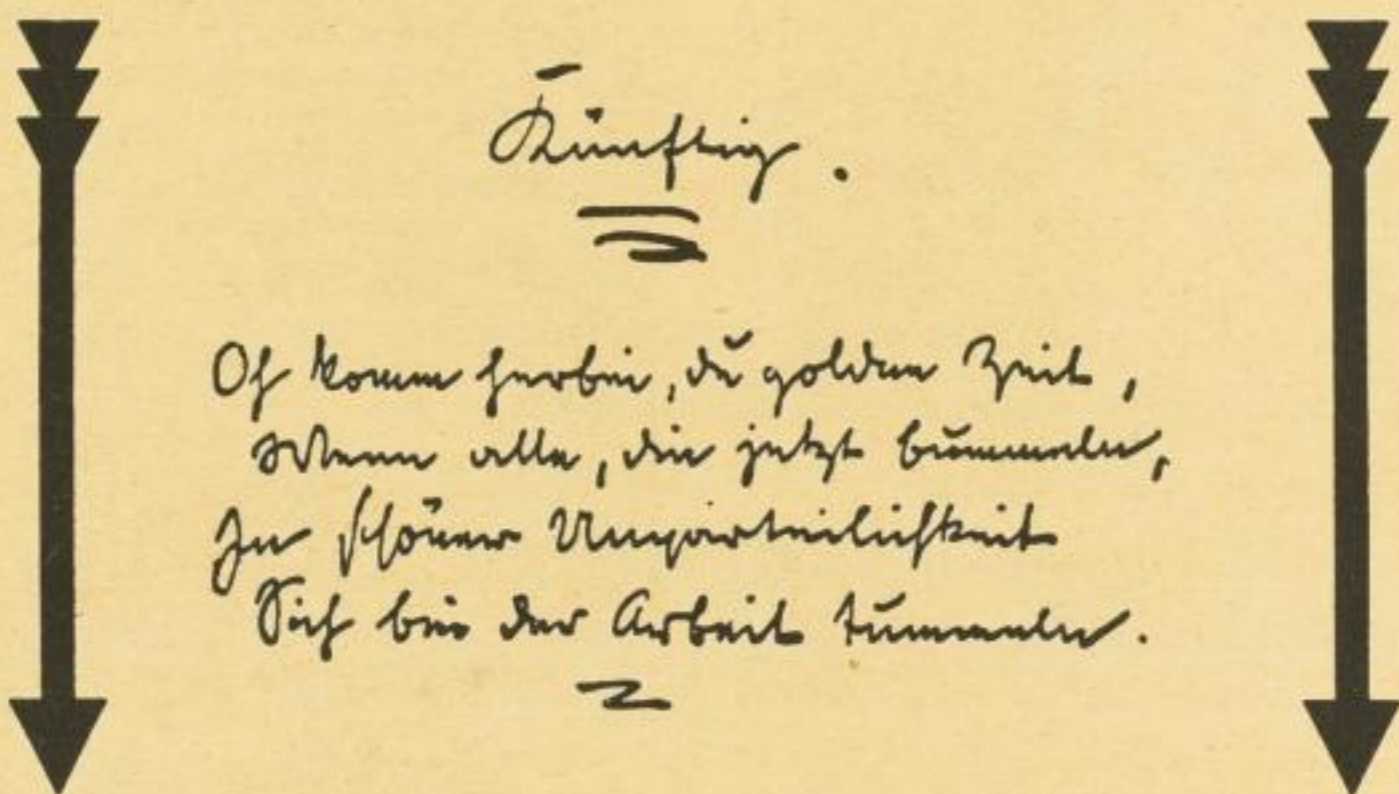 Künftig.
Oh komm herbei, du goldne Zeit,
Wenn alle, die jetzt bummeln,
In schöner Unparteilichkeit
Sich bei der Arbeit tummeln.